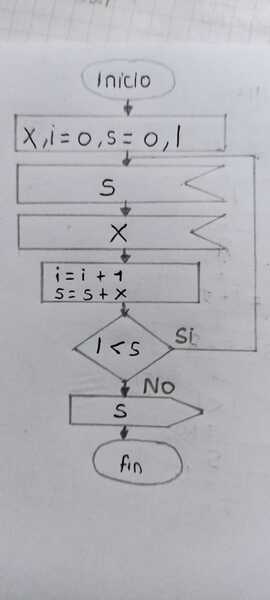 Inicio
X, i=0, s=0, l
S
X
i=i+1
s=s+x
l<s
Si
No
S
fin